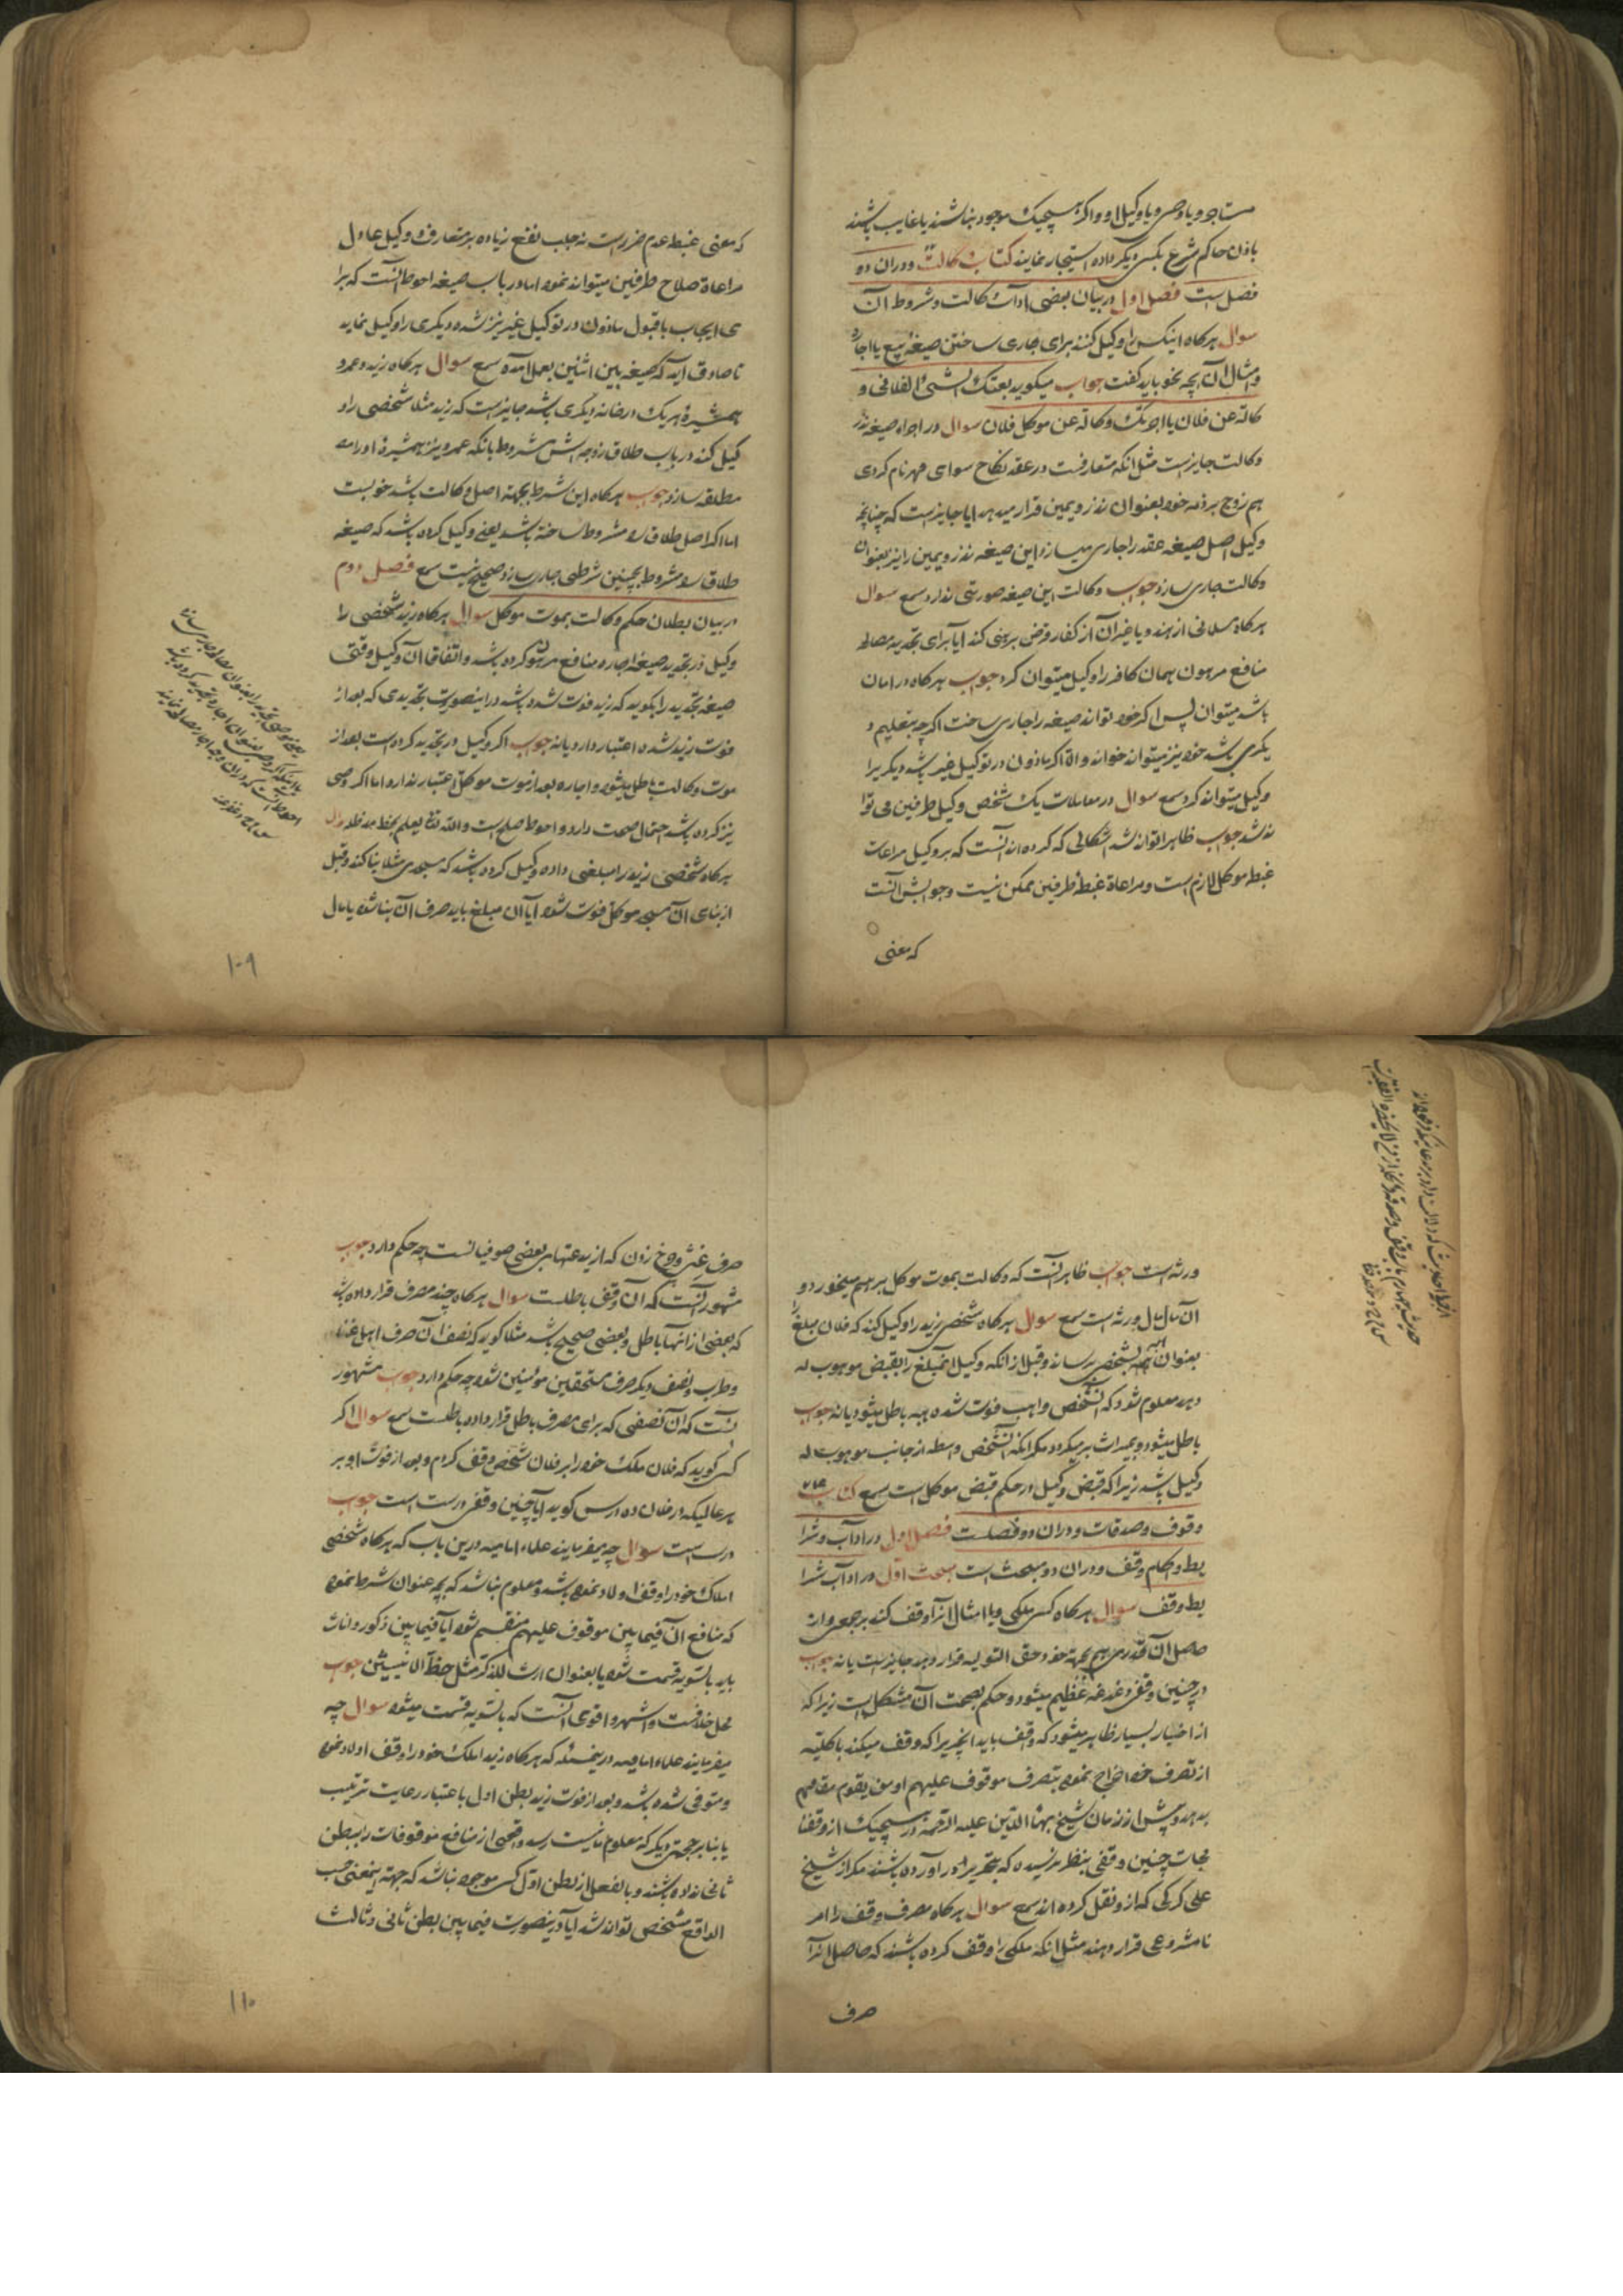 مستاجر و یا وصی و یا وکیل او و اگر هیچیک موجود نباشند یا غایب باشند
باذن حاکم شرع بکس دیگر داده استیجار نمایند کتاب وکالت و در ان دو
فصل است فصل اول در بیان بعضی اداب وکالت و شروط ان
سوال هرگاه اینکس را وکیل کنند برای جاری ساختن صیغهٔ بیع یا اجاره
و امثال ان بچه نحو باید گفت جواب میکوید بعتک الشیٔ الفلانی و
کالة عن فلان یا اجرتک وکالة عن موکل فلان سوال در اجراء صیغه نذر
وکالت جایزست مثل انکه متعارفست در عقد نکاح سوای مهر نام کردی
هم زوج بر ذمه خود بعنوان نذر و یمین قرار میدهد ایا جایزست که چنانچه
وکیل اصل صیغه عقد را جاری میسازد این صیغه نذر و یمین را نیز بعنوان
وکالت جاری سازد جواب وکالت این صیغه صورتی ندارد سمع سوال
هرگاه مسلمانی از هند و یا غیر آن از کفار قرض برهنی کند ایا برای تجدید مصالحه
منافع مرهون همان کافر را وکیل میتوان کرد جواب هرگاه در امان
باشد میتوان پس اگر خود تواند صیغه را جاری ساخت اگر چه بتعلیم د
یکری باشد خود نیز میتواند خواند و الا اگر ماذون در توکیل غیر باشد دیگریرا
وکیل میتواند کرد سمع سوال در معاملات یک شخص وکیل طرفین می توا
ند شد جواب ظاهرا تواند شد اشکالی که کرده اند آنست که بر وکیل مراعات
غبطه موکل لازم است و مراعاة غبطهٔ طرفین ممکن نیست و جوابش آنست
که معنی
که معنی غبطه عدم ضررست نه جلب نفع زیاده بر متعارف و وکیل عادل
مراعاة صلاح طرفین میتواند نمود اما در باب صیغه احوط آنست که برا
ی ایجاب یا قبول ماذون در توکیل غیر نیز شده دیگری را وکیل نماید
تا صادق اید که صیغه بین اثنین بعمل آمده سمع سوال هرگاه زید و عمرو
همشیرهٔ هریک در خانه دیگری باشد جایز است که زید مثلا شخصی را و
کیل کند در باب طلاق زوجه اش مشروط بانکه عمرو نیز همشیرهٔ او را
مطلقه سازد جواب هرگاه این شرط بجهة اصل وکالت باشد خوبست
اما اگر اصل طلاق را مشروط ساخته باشد یعنی وکیل کرده باشد که صیغه
طلاق را مشروط بچنین شرطی جاری سازد صحیح نیست سمع فصل دوم
در بیان بطلان حکم وکالت بموت موکل سوال هرگاه زید شخصی را
وکیل در تجدید صیغه اجاره منافع مرهون کرده باشد و اتفاقا آن وکیل وقتی
صیغه تجدید را بکوید که زید فوت شده باشد در اینصورت تجدیدی که بعد از
فوت زید شده اعتبار دارد یا نه جواب اگر وکیل در تجدید کرده است بعد از
موت وکالت باطل میشود و اجاره بعد از موت موکل اعتبار ندارد و اما اگر وصی
نیز کرده باشد احتمال صحت دارد و احوط صلح است و الله تع یعلم بخط مد ظله سوال
هرگاه شخصی زید را مبلغی داده وکیل کرده باشد که مسجدی مثلا بنا کند و قبل
از بنای آن مسجد موکل فوت شود آیا آن مبلغ باید صرف آن بنا شود یا مال
۱۰۹
ورثه است جواب ظاهر آنست که وکالت بموت موکل برهم میخورد و
آن مال مال ورثه است سمع سوال هرگاه شخصی زید را وکیل کند که فلان مبلغ را
بعنوان هبه بشخصی برساند و قبل از انکه وکیل آنمبلغ را بقبض موهوب له
دهد معلوم شود که آنشخص واهب فوت شده هبه باطل میشود یا نه جواب
باطل میشود و بمیراث برمیگردد مگر آنکه آنشخص واسطه از جانب موهوب له
وکیل باشد زیرا که قبض وکیل در حکم قبض موکل است سمع کتاب
وقوف و صدقات و در ان دو فصلست فصل اول در اداب و شرا
یط و احکام وقف و در ان دو مبحث است مبحث اول در اداب شرا
یط وقف سوال هرگاه کسی ملکی و یا امثال انرا وقف کند بر جمعی و از
حاصل آن قدری هم بجهة خود حق التولیه قرار دهد جایز است یا نه جواب
در چنین وقفی دغدغه عظیم میشود و حکم بصحت آن مشکل است زیرا که
از اخبار بسیار ظاهر میشود که واقف باید انچیز را که وقف میکند بالکلیه
از تصرف خود اخراج نموده بتصرف موقوف علیهم او من یقوم مقامهم
بدهد و پیش از زمان شیخ بهاء الدین علیه الرحمة در هیچیک از وقفنا
مجات چنین وقفی بنظر نرسیده که بتحریر در آورده باشند مکر از شیخ
علی کرکی که ازو نقل کرده اند سمع سوال هرگاه مصرف وقف را امر
نامشروعی قرار دهند مثل انکه ملکی را وقف کرده باشند که حاصل انرا
صرف
صرف غش و چرخ زدن که از بدعتهای بعضی صوفیانست چه حکم دارد جواب
مشهور آنست که آن وقف باطلست سوال هرگاه چند مصرف قرار داده باشد
که بعضی از انها باطل و بعضی صحیح باشد مثلا کوید که نصف آن صرف اهل غنا
و طرب و نصف دیگر صرف مستحقین مومنین شود چه حکم دارد جواب مشهور
آنست که آن نصفی که برای مصرف باطل قرار داده باطلست سمع سوال اگر
کسی کوید که فلان ملک خود را بر فلان شخص وقف کردم و بعد از فوت او بر
هر عالمیکه در فلان ده درس کوید ایا چنین وقفی درست است جواب
درست است سوال چه میفرمایند علماء امامیه درین باب که هرگاه شخصی
املاک خود را وقف اولاد نموده باشد و معلوم نباشد که بچه عنوان شرط نموده
که منافع ان فیما بین موقوف علیهم منقسم شود آیا فیما بین ذکور و اناث
باید بالسویه قسمت شود یا بعنوان ارث للذکر مثل حظ الانثیین جواب
محل خلافست و اشهر و اقوی آنست که بالسویه قسمت میشود سوال چه
میفرمایند علماء امامیه درینمسئله که هرگاه زید املاک خود را وقف اولاد نموده
و متوفی شده باشد و بعد از فوت زید بطن اول باعتبار رعایت ترتیب
یا بنابر جهتی دیگر که معلوم ما نیست رسد و قسمی از منافع موقوفات را ببطن
ثانی نداده باشند و بالفعل از بطن اول کسی موجود نباشد که جهة اینمعنی حسب
الواقع مشخص تواند شد ایا درینصورت فیما بین بطن ثانی و ثالث
۱۱۰